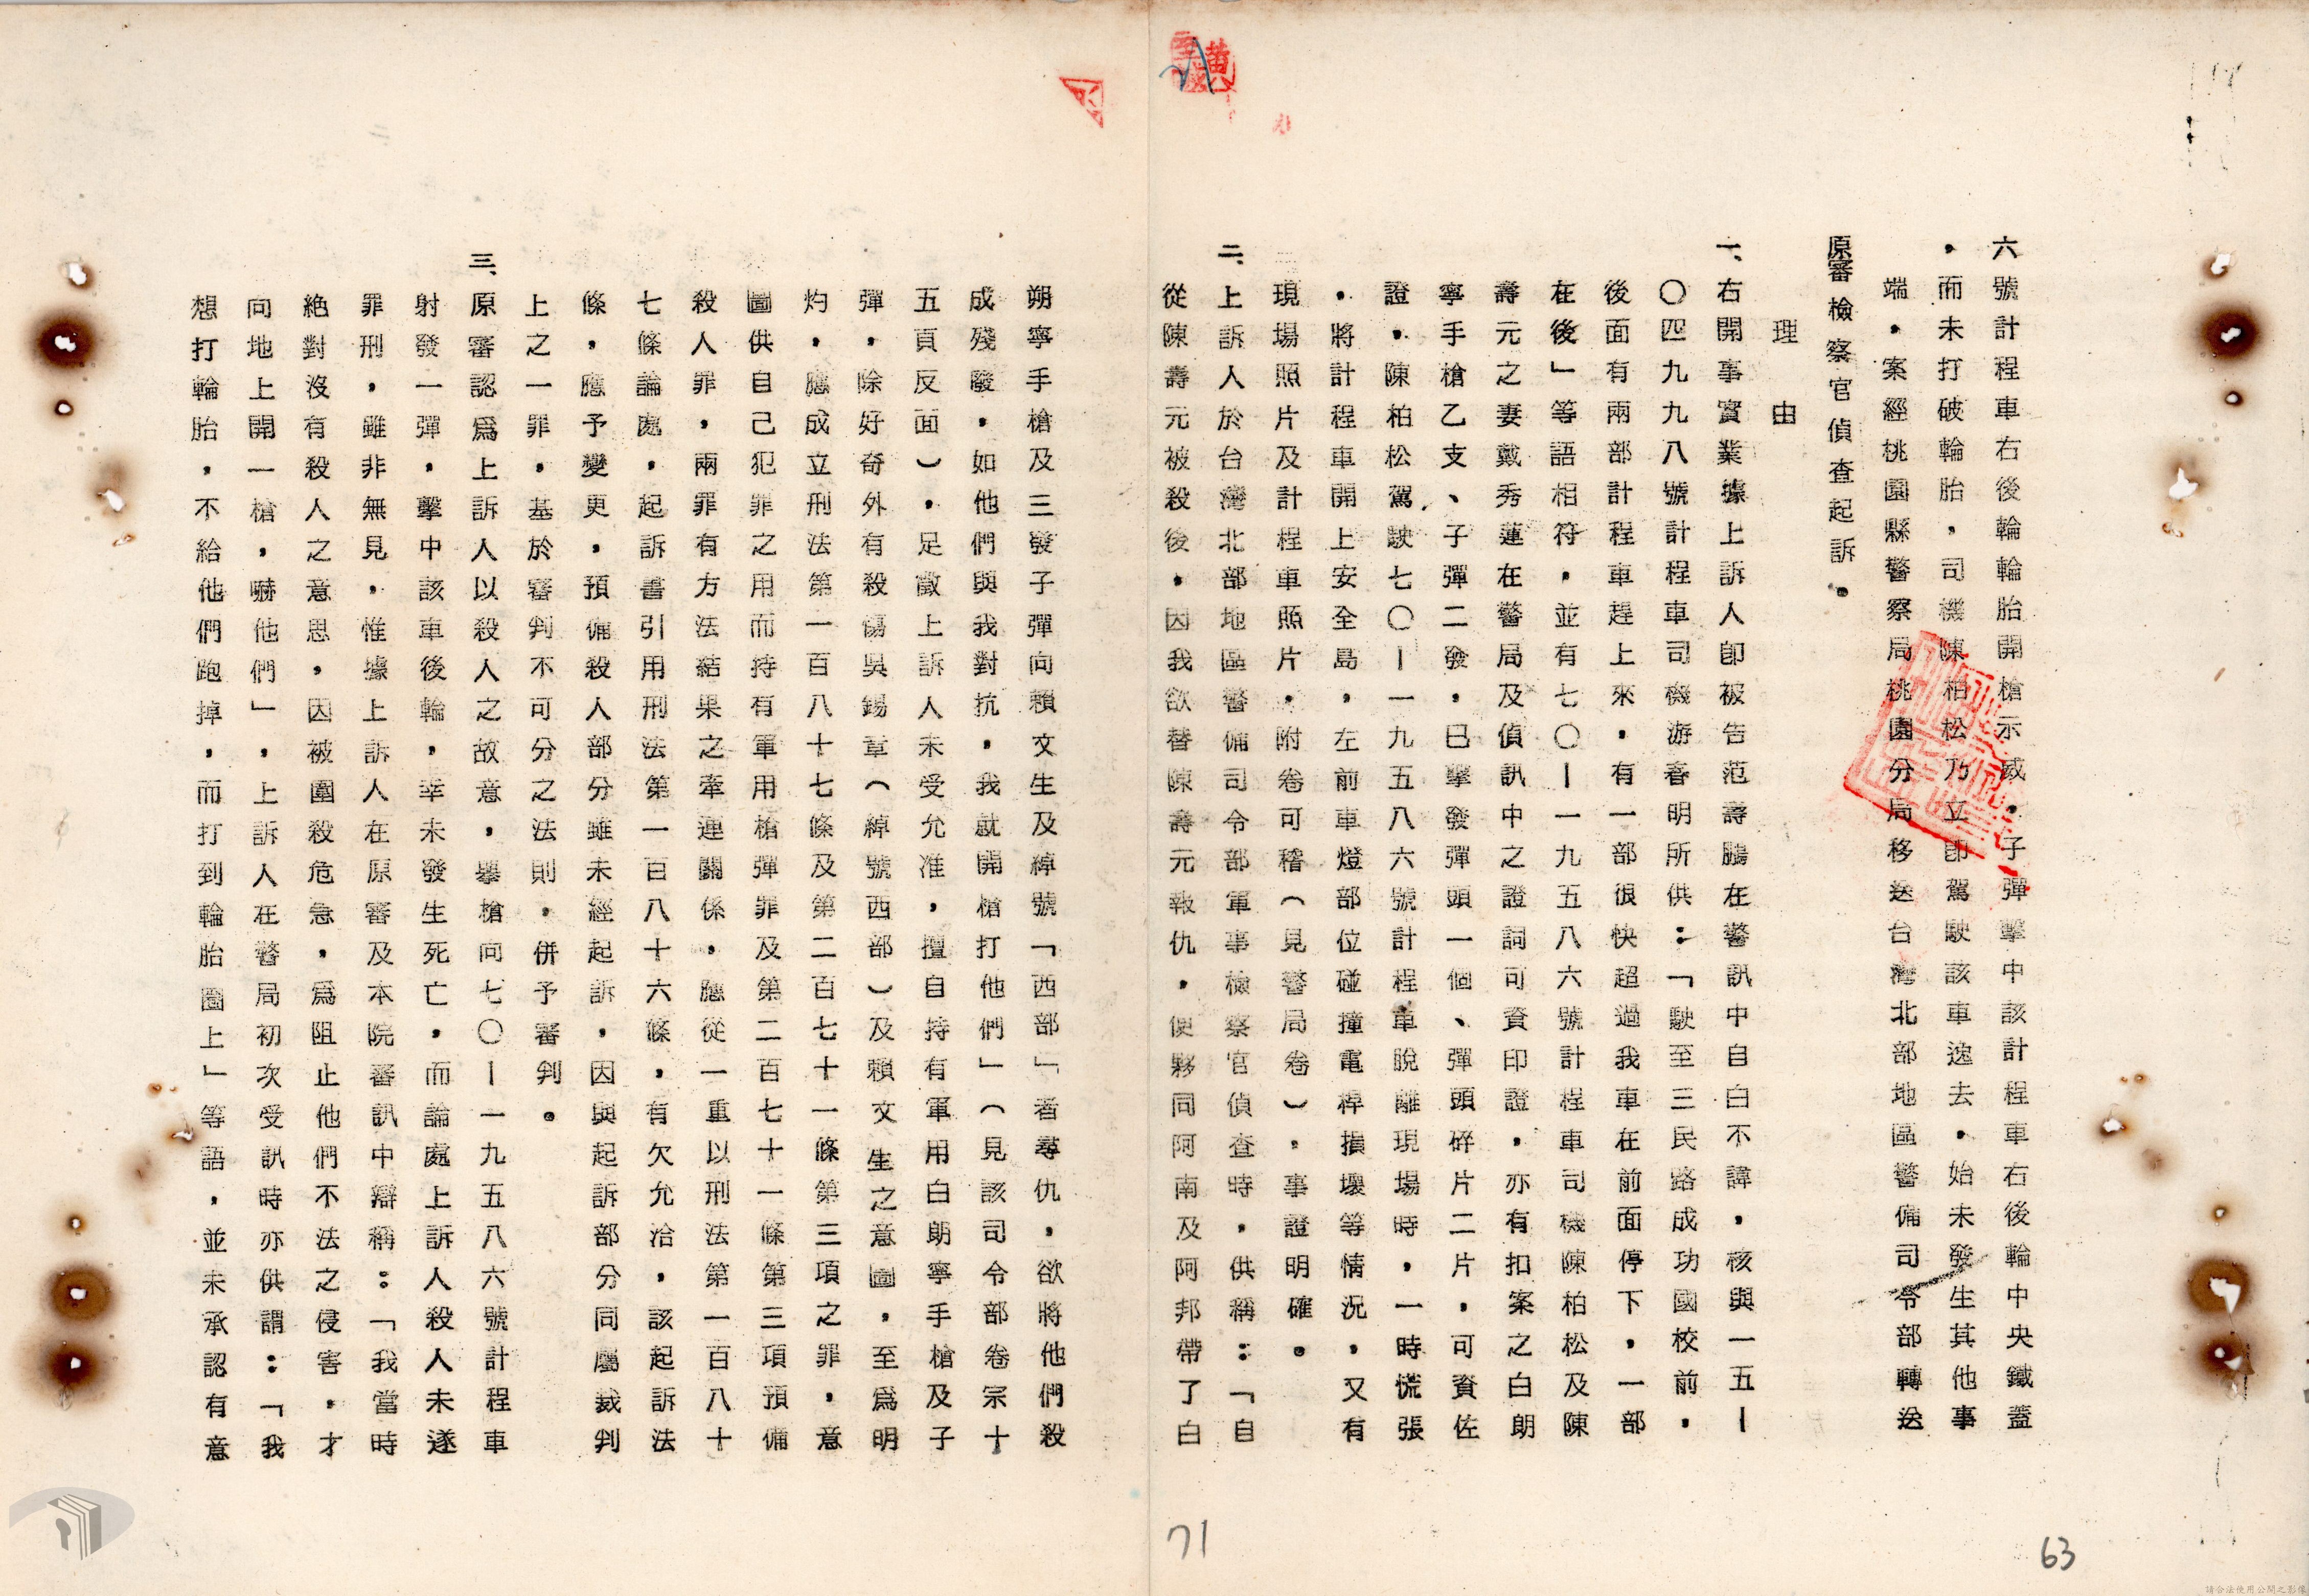 六號計程車右後輪輪胎開槍示威，子彈擊中該計程車右後輪中央鐵蓋
，而未打破輪胎，司機陳柏松乃立即駕駛該車逸去，始未發生其他事
端，案經桃園縣警察局桃園分局移送台灣北部地區警備司令部轉送
原審檢察官偵查起訴。
理由
一、右開事實業據上訴人即被告范壽鵬在警訊中自白不諱，核與一五－
〇四九九八號計程車司機游春明所供：「駛至三民路成功國校前，
後面有兩部計程車趕上來，有一部很快超過我車在前面停下，一部
在後」等語相符，並有七〇－一九五八六號計程車司機陳柏松及陳
壽元之妻戴秀蓮在警局及偵訊中之證詞可資印證，亦有扣案之白朗
寧手槍乙支、子彈二發，已擊發彈頭一個、彈頭碎片二片，可資佐
證，陳柏松駕駛七〇－一九五八六號計程車脫離現場時，一時慌張
，將計程車開上安全島，左前車燈部位碰撞電桿損壞等情況，又有
現場照片及計程車照片，附卷可稽（見警局卷），事證明確。
二、上訴人於台灣北部地區警備司令部軍事檢察官偵查時，供稱：「自
從陳壽元被殺後，因我欲替陳壽元報仇，便夥同阿南及阿邦帶了白
朔寧手槍及三發子彈向賴文生及綽號「西部」者尋仇，欲將他們殺
成殘廢，如他們與我對抗，我就開槍打他們」（見該司令部卷宗十
五頁反面），足徵上訴人未受允准，擅自持有軍用白朗寧手槍及子
彈，除好奇外有殺傷吳錫章（綽號西部）及賴文生之意圖，至為明
灼，應成立刑法第一百八十七條及第二百七十一條第三項之罪，意
圖供自己犯罪之用而持有軍用槍彈罪及第二百七十一條第三項預備
殺人罪，兩罪有方法結果之牽連關係，應從一重以刑法第一百八十
七條論處，起訴書引用刑法第一百八十六條，有欠允洽，該起訴法
條，應予變更，預備殺人部分雖未經起訴，因與起訴部分同屬裁判
上之一罪，基於審判不可分之法則，併予審判。
三、原審認為上訴人以殺人之故意，舉槍向七〇－一九五八六號計程車
射發一彈，擊中該車後輪，幸未發生死亡，而論處上訴人殺人未遂
罪刑，雖非無見，惟據上訴人在原審及本院審訊中辯稱：「我當時
絕對沒有殺人之意思，因被圍殺危急，為阻止他們不法之侵害，才
向地上開一槍，嚇他們」，上訴人在警局初次受訊時亦供謂：「我
想打輪胎，不給他們跑掉，而打到輪胎圈上」等語，並未承認有意
71
63
請合法使用公開之影像